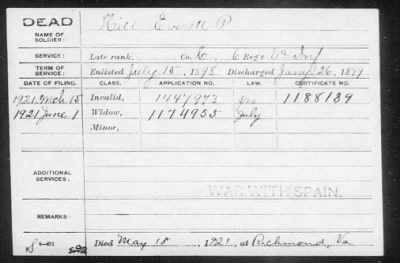 DEAD
NAME OF SOLDIER: Hill Everett P
SERVICE: Late rank, Co. L, 6 Reg't Va Inf
TERM OF SERVICE: Enlisted July 15, 1898 Discharged Jany 26, 1899
DATE OF FILING. CLASS. APPLICATION NO. LAW. CERTIFICATE NO.
1921 Mch 15 Invalid, 1447973 1188139
1921 June 1 Widow, 1174955 July
Minor,
ADDITIONAL SERVICES:
WAR WITH SPAIN.
REMARKS:
Died May 18, 1921, at Richmond, Va